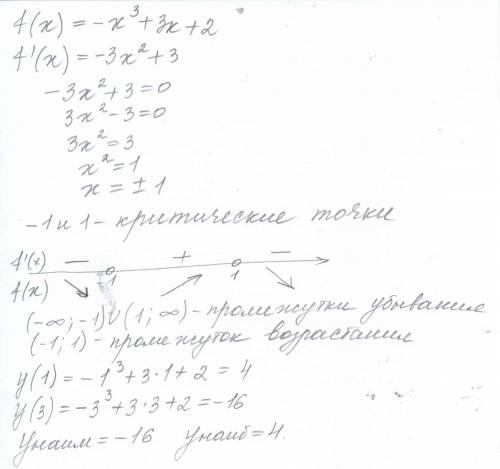 f(x) = -x³+3x+2
f'(x) = -3x²+3
-3x²+3=0
3x²-3=0
3x²=3
x²=1
x=±1
-1 и 1 - критические точки
f'(x) — + —
f(x) 1 1
(-∞; -1)∪(1; ∞) - промежутки убывания
(-1; 1) - промежуток возрастания
y(1) = -1³+3·1+2=4
y(3) = -3³+3·3+2=-16
Yнаим=-16 Yнаиб=4.